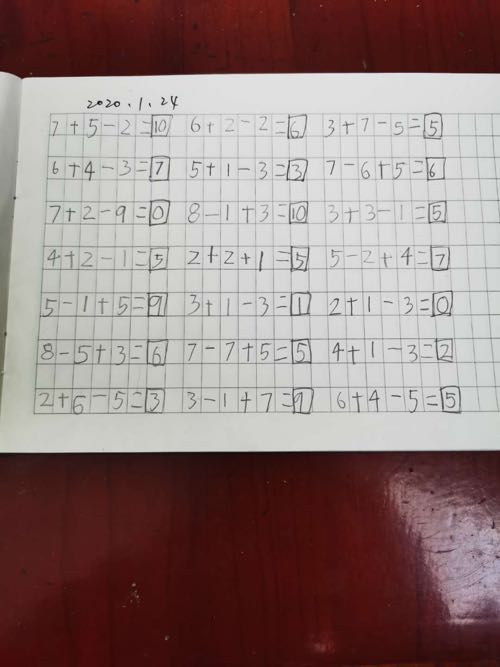 2020.1.24
7+5-2=10 6+2-2=6 3+7-5=5
6+4-3=7 5+1-3=3 7-6+5=6
7+2-9=0 8-1+3=10 3+3-1=5
4+2-1=5 2+2+1=5 5-2+4=7
5-1+5=9 3+1-3=1 2+1-3=0
8-5+3=6 7-7+5=5 4+1-3=2
2+6-5=3 3-1+7=9 6+4-5=5